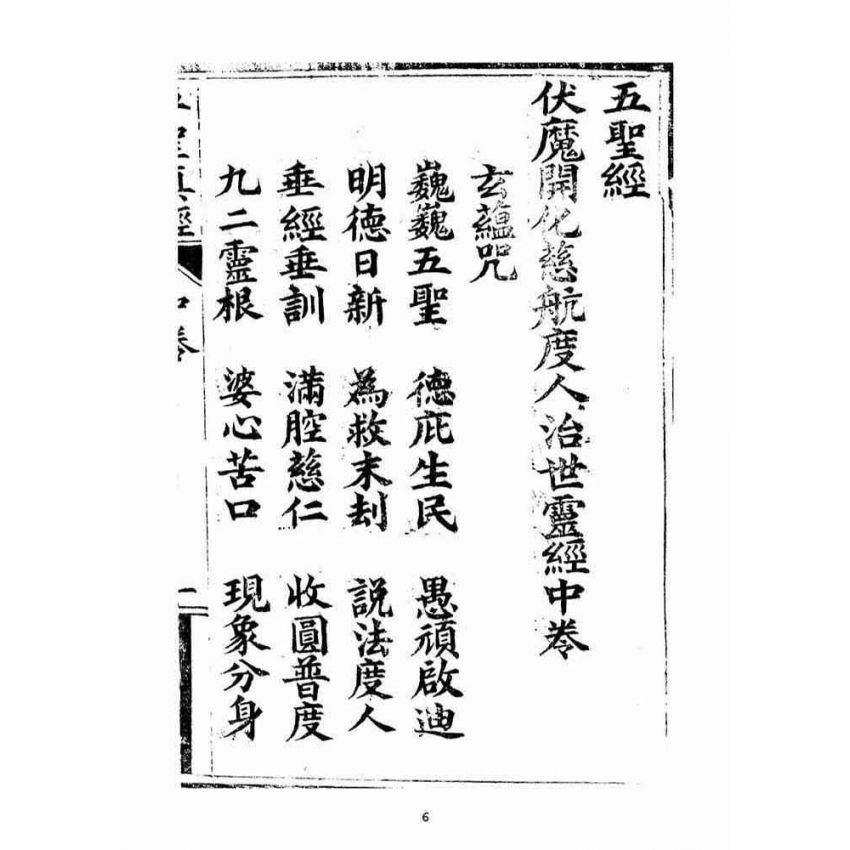 五聖經
伏魔開化慈航度人治世靈經中卷
玄蘊咒
巍巍五聖 德庇生民 愚頑啟迪
明德日新 為救末刦 説法度人
垂經垂訓 滿腔慈仁 收圓普度
九二靈根 婆心苦口 現象分身
聖真經 中卷
6